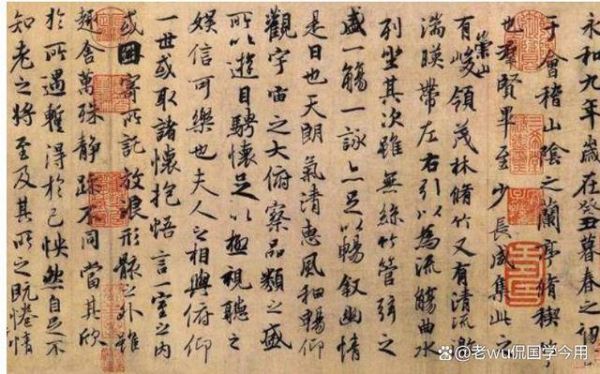 永和九年歲在癸丑暮春之初
于會稽山陰之蘭亭脩稧事
也羣賢畢至少長咸集此
崇山
有峻領茂林脩竹又有清流激
湍暎帶左右引以為流觴曲水
列坐其次雖無絲竹管弦之
盛一觴一詠亦足以暢敘幽情
是日也天朗氣清惠風和暢仰
觀宇宙之大俯察品類之盛
所以遊目騁懷足以極視聽之
娛信可樂也夫人之相與俯仰
一世或取諸懷抱悟言一室之內
或因寄所託放浪形骸之外雖
趣舍萬殊靜躁不同當其欣
於所遇暫得於己怏然自足不
知老之將至及其所之既惓情
老wu侃国学今用